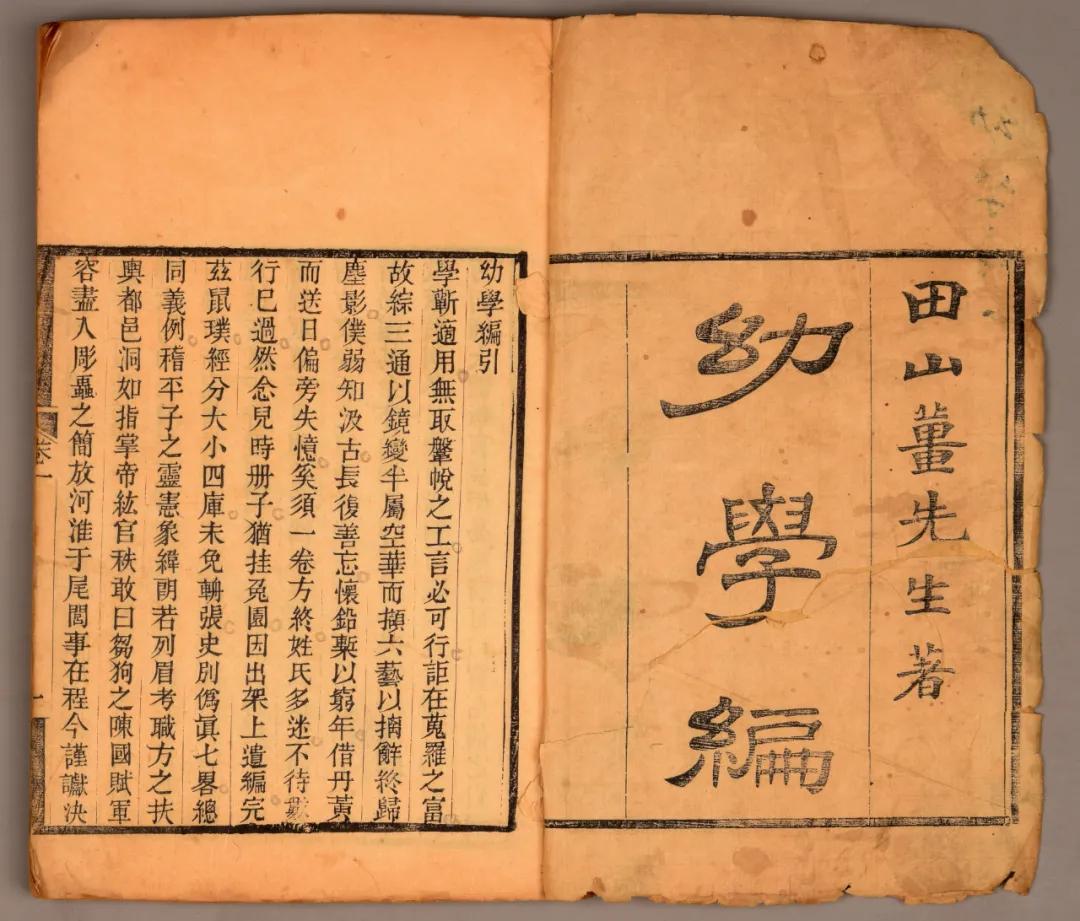 田山薑先生著
幼學編
幼學編引
學蘄適用無取鞶帨之工言必可行詎在蒐羅之富
故綜三通以鏡變半屬空華而擷六藝以摛辭終歸
塵影僕弱知汲古長復善忘懷鉛槧以窮年借丹黃
而送日偏旁失憶奚須一卷方終姓氏多迷不待數
行巳過然念兒時册子猶挂兔園因出架上遺編完
茲鼠璞經分大小四庫未免輈張史別僞眞七畧總
同義例稽平子之靈憲象緯朗若列眉考職方之扶
輿都邑洞如指掌帝紘官秩敢曰芻狗之陳國賦軍
容盡入彫蟲之簡放河淮于尾閭事在程今謹讞決
卷一
一